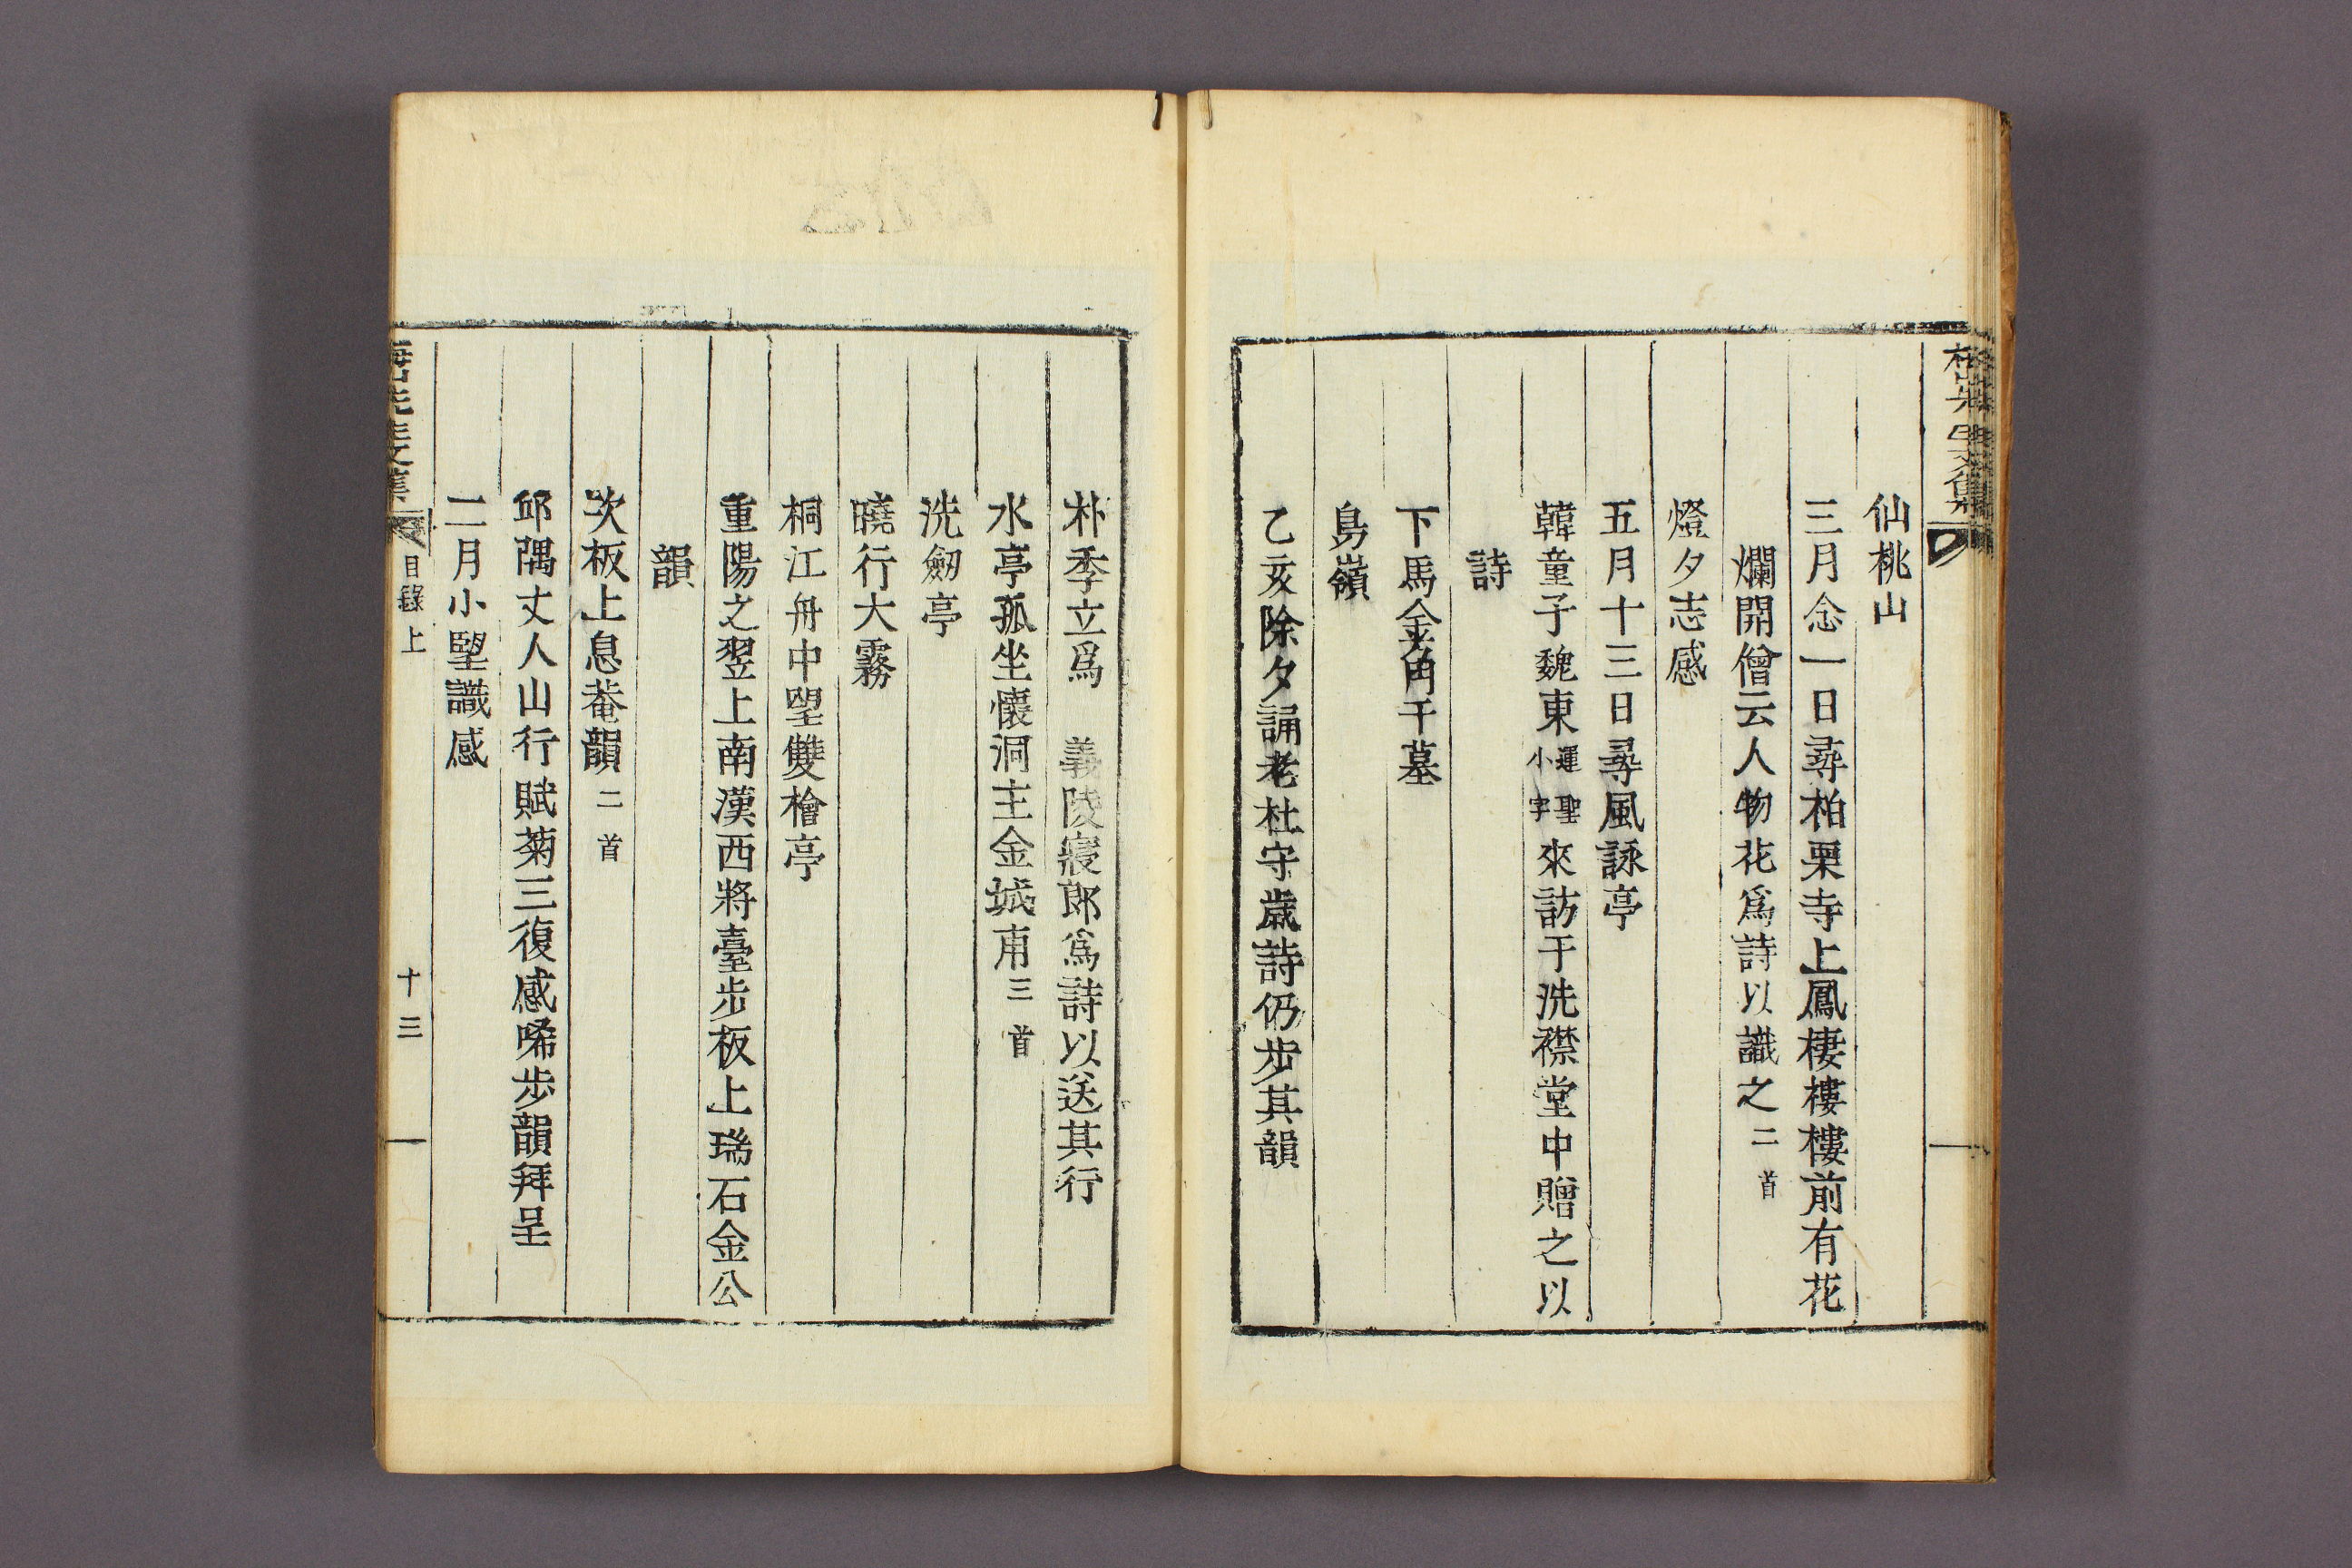 仙桃山
三月念一日尋柏栗寺上鳳棲樓樓前有花
爛開僧云人物花爲詩以識之二首
燈夕志感
五月十三日尋風詠亭
韓童子魏東運聖小字來訪于洗襟堂中贈之以
詩
下馬金角干墓
島嶺
乙亥除夕誦老杜守歲詩仍步其韻
朴季立爲 義陵寢郎爲詩以送其行
水亭孤坐懷洞主金城甫三首
洗劒亭
曉行大霧
桐江舟中望雙檜亭
重陽之翌上南漢西將臺步板上瑞石金公
韻
次板上息菴韻二首
邱隅丈人山行賦菊三復感唏步韻拜呈
二月小望識感
目錄上 十三